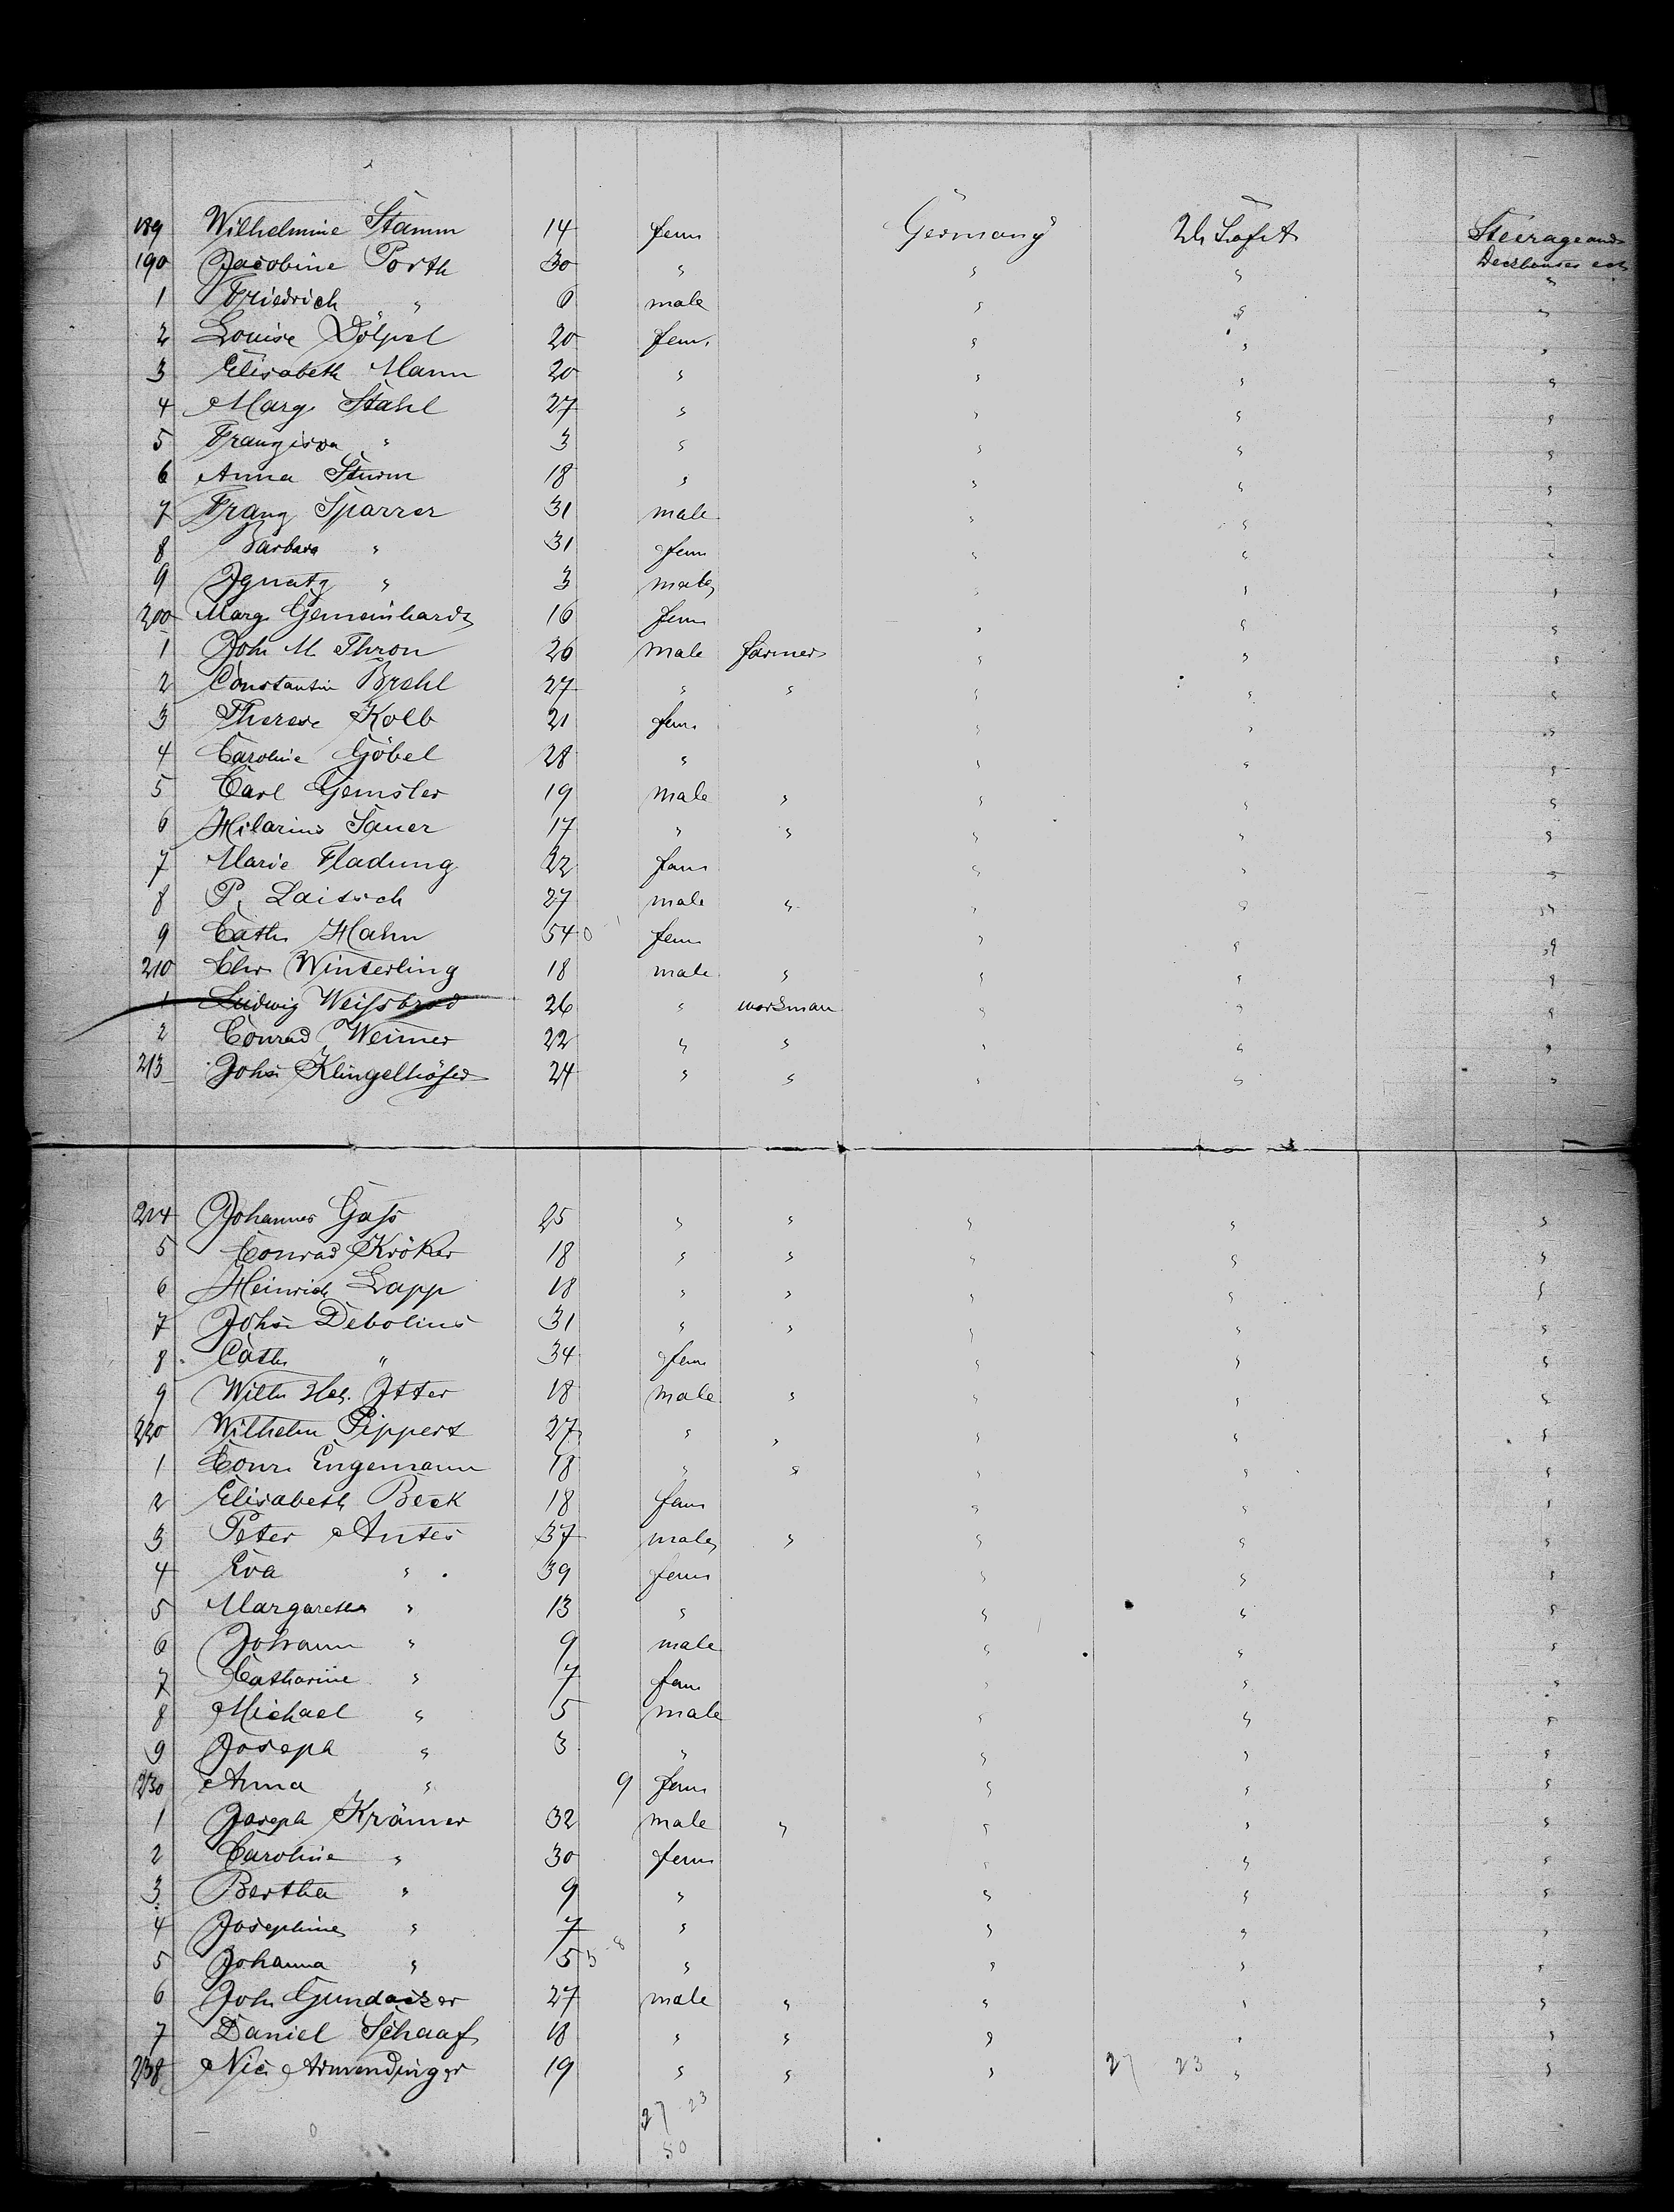 189 Wilhelmine Stamm 14 fem Germany U. States Steerage and
Deckhouses
190 Jacobine Porth 30 " " " "
1 Friedrich " 6 male " " "
2 Louise Dölpel 20 fem. " " "
3 Elisabeth Mann 20 " " " "
4 Marg. Stahl 27 " " " "
5 Franzisca " 3 " " " "
6 Anna Sturm 18 " " " "
7 Franz Sparrer 31 male " " "
8 Barbara " 31 fem " " "
9 Ignatz " 3 male " " "
200 Marg. Gemeinhardt 16 fem " " "
1 Joh. M. Thron 26 male farmer " " "
2 Constantin Brehl 27 " " " " "
3 Therese Kolb 21 fem. " " "
4 Caroline Göbel 28 " " " "
5 Carl Gemsler 19 male " " " "
6 Hilarius Sauer 17 " " " " "
7 Marie Fladung 22 fem " " "
8 P. Laitsch 27 male " " " "
9 Cath. Hahn 54 0 fem " " "
210 Chr. Winterling 18 male " " " "
1 Ludwig Weißbrod 26 " workman " " "
2 Conrad Weimer 22 " " " " "
213 Johs. Klingelhöfer 24 " " " " "
214 Johannes Gaß 25 " " " " "
5 Conrad Kröker 18 " " " " "
6 Heinrich Lapp 18 " " " " "
7 Johs. Debolius 31 " " " " "
8 Cath. " 34 fem " " "
9 Wilh. Itter 18 male " " " "
220 Wilhelm Pippert 27 " " " " "
1 Conr. Engemann 18 " " " " "
2 Elisabeth Beck 18 fem " " "
3 Peter Antes 37 male " " " "
4 Eva " 39 fem " " "
5 Margaretha " 13 " " " "
6 Johann " 9 male " " "
7 Catharine " 7 fem " " "
8 Michael " 5 male " " "
9 Joseph " 3 " " " "
230 Anna " 9 fem " " "
1 Joseph Krämer 32 male " " " "
2 Caroline " 30 fem " " "
3 Bertha " 9 " " " "
4 Josephine " 7 " " " "
5 Johanna " 5 " " " "
6 Joh. Gundacker 27 male " " " "
7 Daniel Schaaf 18 " " " " "
238 Nic. Armendinger 19 " " " 27 23 " "
27 23
50